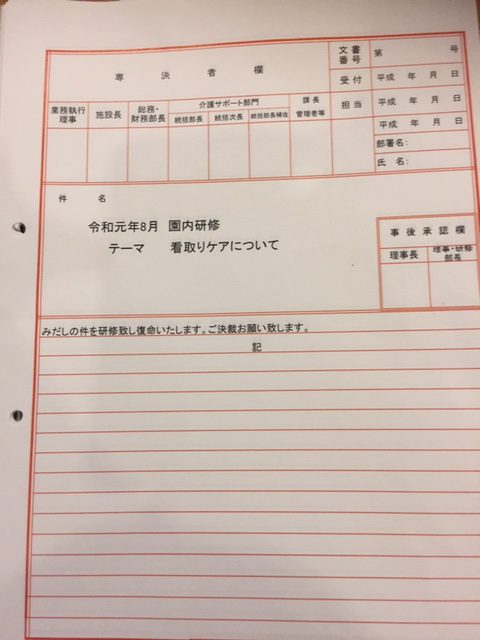 専決者欄
文書番号 第 号
受付 平成 年 月 日
担当 平成 年 月 日
平成 年 月 日
部署名:
氏名:
業務執行理事 施設長 総務・財務部長 介護サポート部門 課長管理者等
統括部長 統括次長 統括部長補佐
件名
令和元年8月 園内研修
テーマ 看取りケアについて
事後承認欄
理事長 理事・研修部長
みだしの件を研修致し復命いたします。ご決裁お願い致します。
記